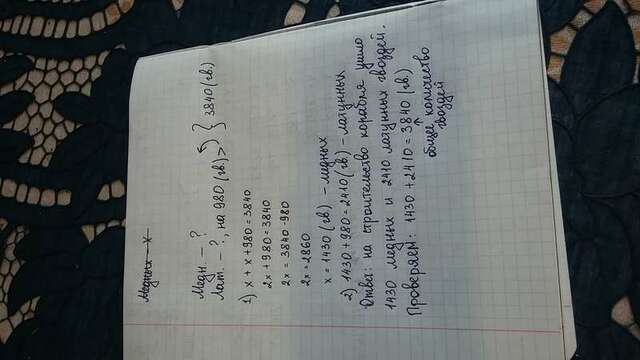 Медных - х
Медн. - ?
Лат. - ?, на 980 (гв.) > } 3840 (гв.)
1) х + х + 980 = 3840
2х + 980 = 3840
2х = 3840 - 980
2х = 2860
х = 1430 (гв.) - медных
2) 1430 + 980 = 2410 (гв.) - латунных
Ответ: на строительство корабля ушло
1430 медных и 2410 латунных гвоздей.
Проверяем: 1430 + 2410 = 3840 (гв.)
общее количество
гвоздей